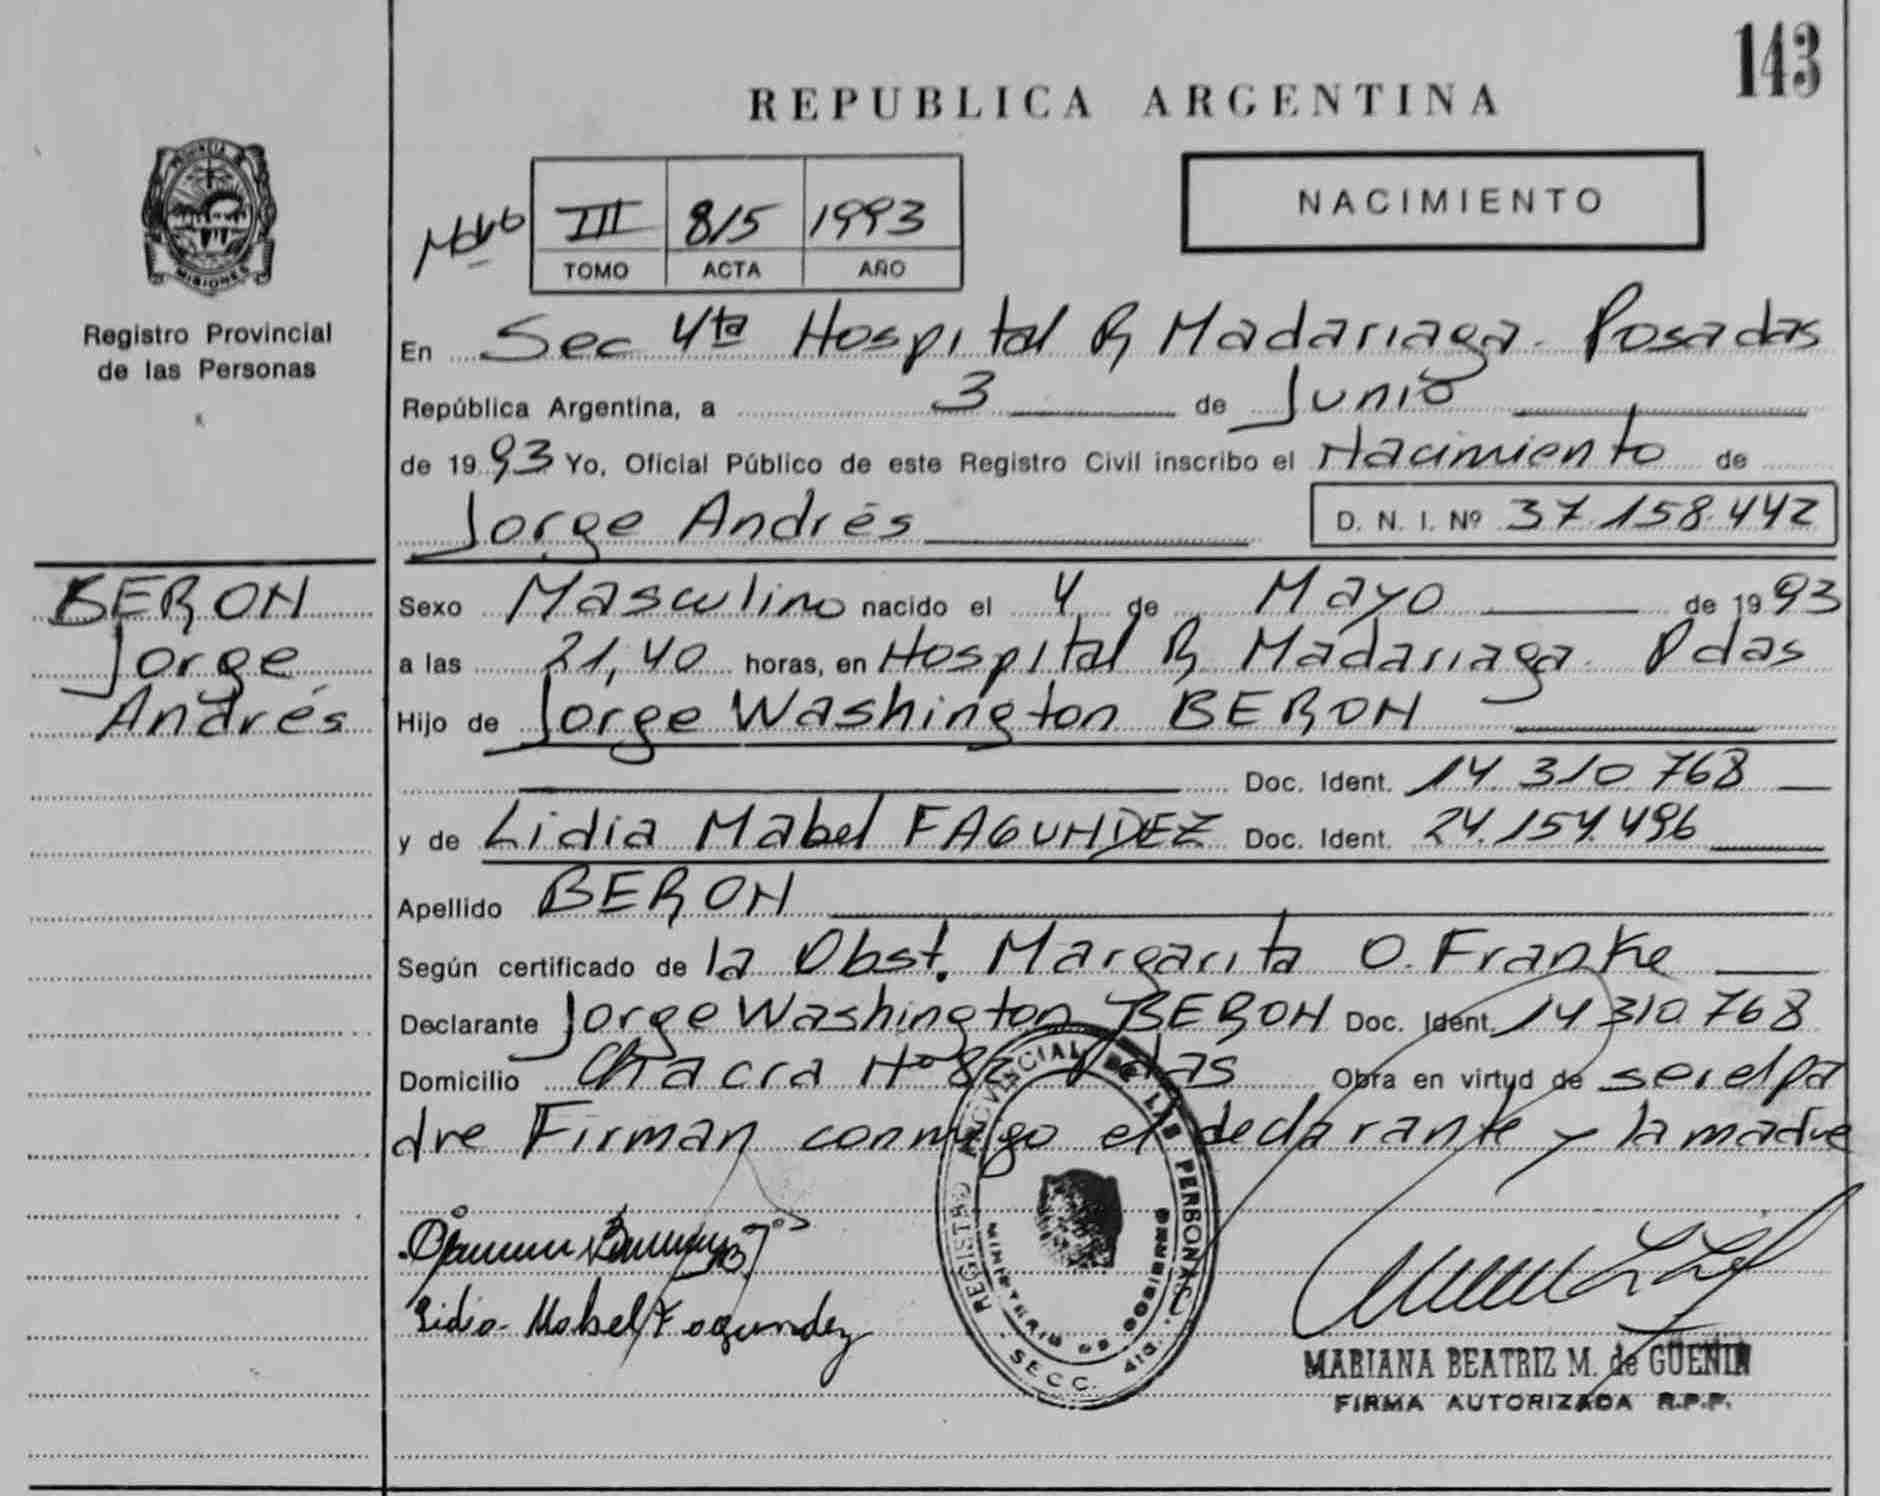 143
REPUBLICA ARGENTINA
PROVINCIA DE
MISIONES
Registro Provincial
de las Personas
III 8/5 1993
TOMO ACTA AÑO
NACIMIENTO
En Sec 4ta Hospital R Madariaga. Posadas
República Argentina, a 3 de Junio
de 1993 Yo, Oficial Público de este Registro Civil inscribo el Nacimiento de
Jorge Andrés D. N. I. Nº 37.158.442
BERON
Jorge
Andrés
Sexo Masculino nacido el 4 de Mayo de 1993
a las 21,40 horas, en Hospital R. Madariaga. Pdas
Hijo de Jorge Washington BERON
Doc. Ident. 14.310.768
y de Lidia Mabel FAGUNDEZ Doc. Ident. 24.154.496
Apellido BERON
Según certificado de la Obst. Margarita O. Franke
Declarante Jorge Washington BERON Doc. Ident. 14 310 768
Domicilio Chacra Nº Pdas Obra en virtud de ser el pa
dre Firman conmigo el declarante y la madre
REGISTRO PROVINCIAL DE LAS PERSONAS
MINISTERIO DE GOBIERNO
SECC. 4ta.
Lidia Mabel Fagundez
MARIANA BEATRIZ M. de GÜENIN
FIRMA AUTORIZADA R.P.P.